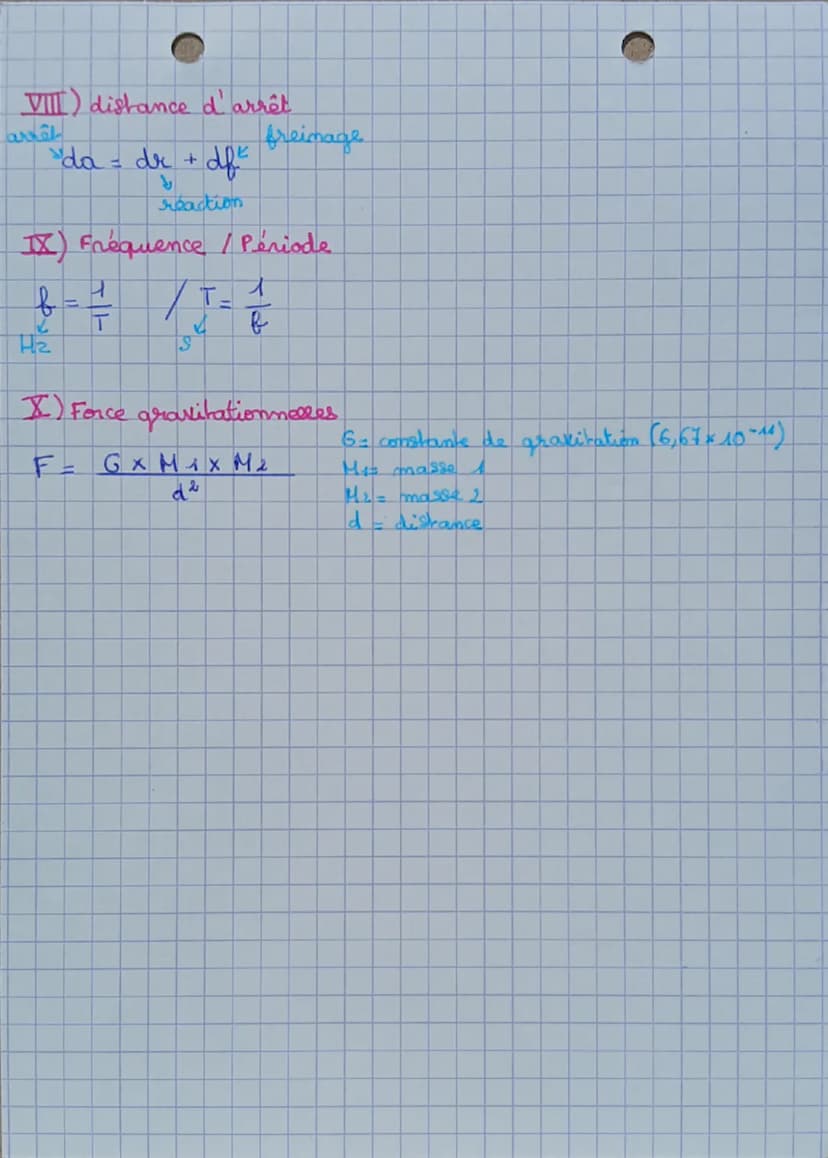 VIII) distance d'arrêt
arrêt freinage
da = dr + df
réaction
IX) Fréquence / Période
f = 1/T / T = 1/f
Hz s
X) Force gravitationnelles
G = constante de gravitation (6,67 × 10⁻¹¹)
F = G × M1 × M2 / d²
M1 = masse 1
M2 = masse 2
d = distance